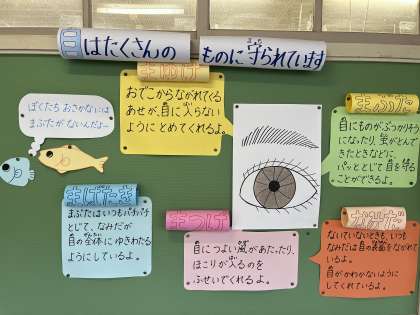 目はたくさんの ものに守られています
まゆげ
おでこからながれてくる
あせが、目に入らない
ようにとめてくれるよ。
まぶた
目にものがぶつかりそう
になったり、虫がとんで
きたときなどに
パッととじて目を守る
ことができるよ。
ぼくたち おさかなには
まぶたがないんだよー
まばたき
まぶたはいつもパチパチ
とじて、なみだが
目の全体にゆきわたる
ようにしているよ。
まつげ
目につよい風があたったり、
ほこりが入るのを
ふせいでくれるよ。
なみだ
ないていないときも、いつも
なみだは目の表面をながれて
いるよ。
目がかわかないように
してくれているよ。